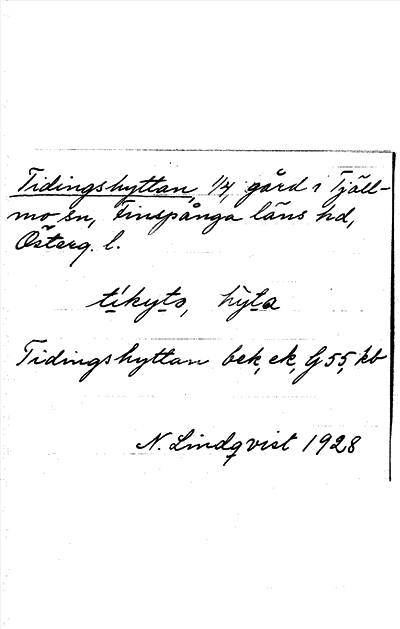 Tidingshyttan, 1/4, gård i Tjäll-
mo sn, Finspånga läns hd,
Österg. l.
hỳta
Tidingshyttan bek, ek, G 55, kb
N. Lindqvist 1928